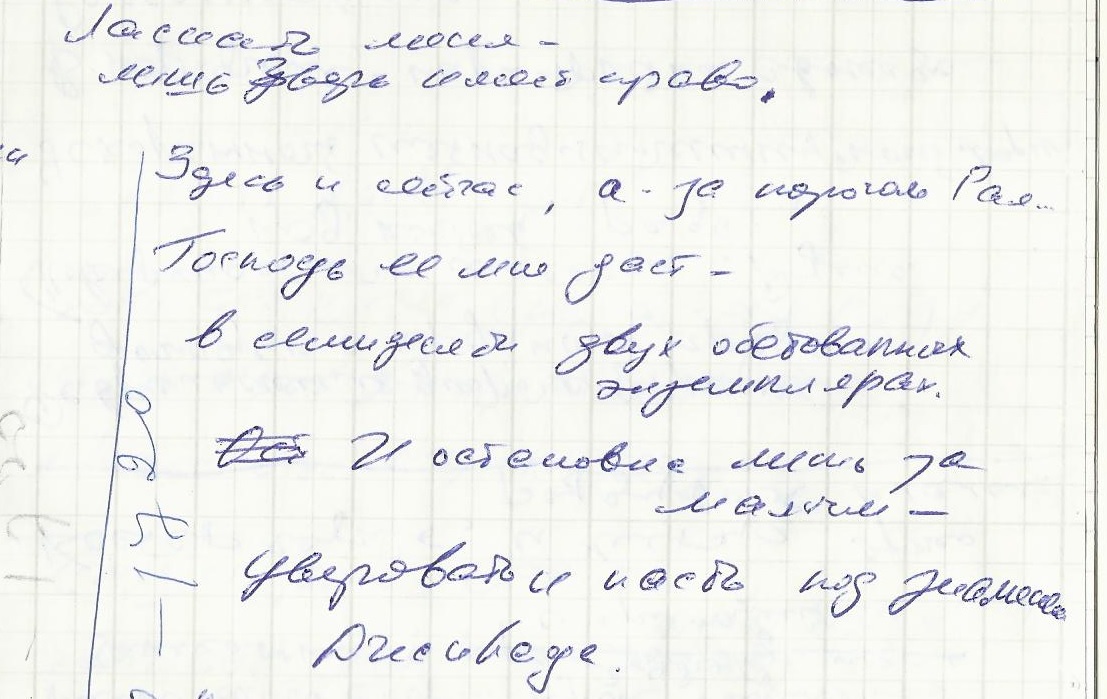 Ласкать меня –
лишь Зверь имеет право.
Здесь и сейчас, а - за порогом Рая...
Господь её мне даст –
в семидесяти двух обетованных
экземплярах.
И остановка лишь за
малым –
уверовать и пасть под знамена
Джихада.
– 1720